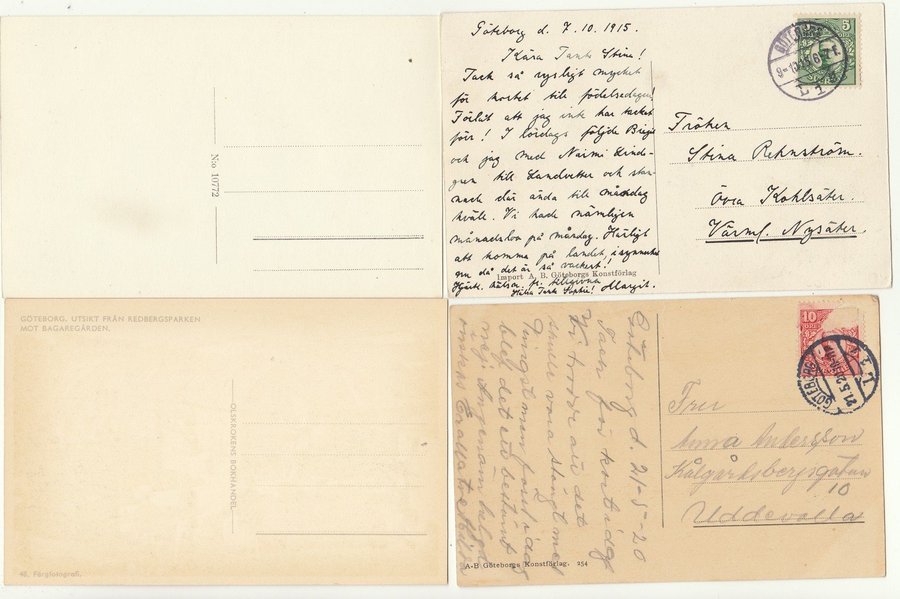 No 10772
Göteborg d. 7.10.1915.
Kära Tant Stina!
Tack så rysligt mycket
för kortet till födelsedagen!
Förlåt att jag inte har tackat
förr! I lördags följde Birgit
och jag med Naimi Lind-
gren till Landvetter och stan-
nade där ända till måndag
kväll. Vi hade nämligen
månadslov på måndag. Härligt
att komma på landet, i synnerhet
nu då det är så vackert!
Hjärtl. hälsn. fr. tillgivna
Hälsa Tant Sophie! Margit.
Import A. B. Göteborgs Konstförlag
5
GÖTEBORG
Fröken
Stina Rehnström.
Övra Kohlsäter.
Värml. Nysäter.
GÖTEBORG. UTSIKT FRÅN REDBERGSPARKEN
MOT BAGAREGÅRDEN.
OLSKROKENS BOKHANDEL
48. Färgfotografi.
Göteborg d. 21-5-20
Tack för kortet idag
Vi trodde att det
skulle vara stängt med
Pingst men först i dag
blef det
A-B Göteborgs Konstförlag. 254
10
ÖRE
GÖTEBORG
21.5.20
Fru
Anna Andersson
Kålgårdsbergsgatan
10
Uddevalla